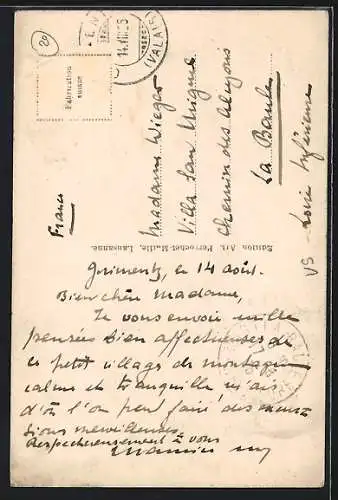 20
14.VIII.28
(VALAIS)
Fabrication
suisse
Madame Wieger
Villa San Unigue
Chemin des Alcyons
La Baule
Loire Inférieure
France
VS
Edition Art. Perrochet-Matile, Lausanne.
Grimentz, le 14 août.
Bien chère Madame,
Je vous envoie mille
pensées bien affectueuses de
ce petit village de montagne
calme et tranquille mais
d'où l'on peut faire des excur
sions merveilleuses.
Respectueusement à vous